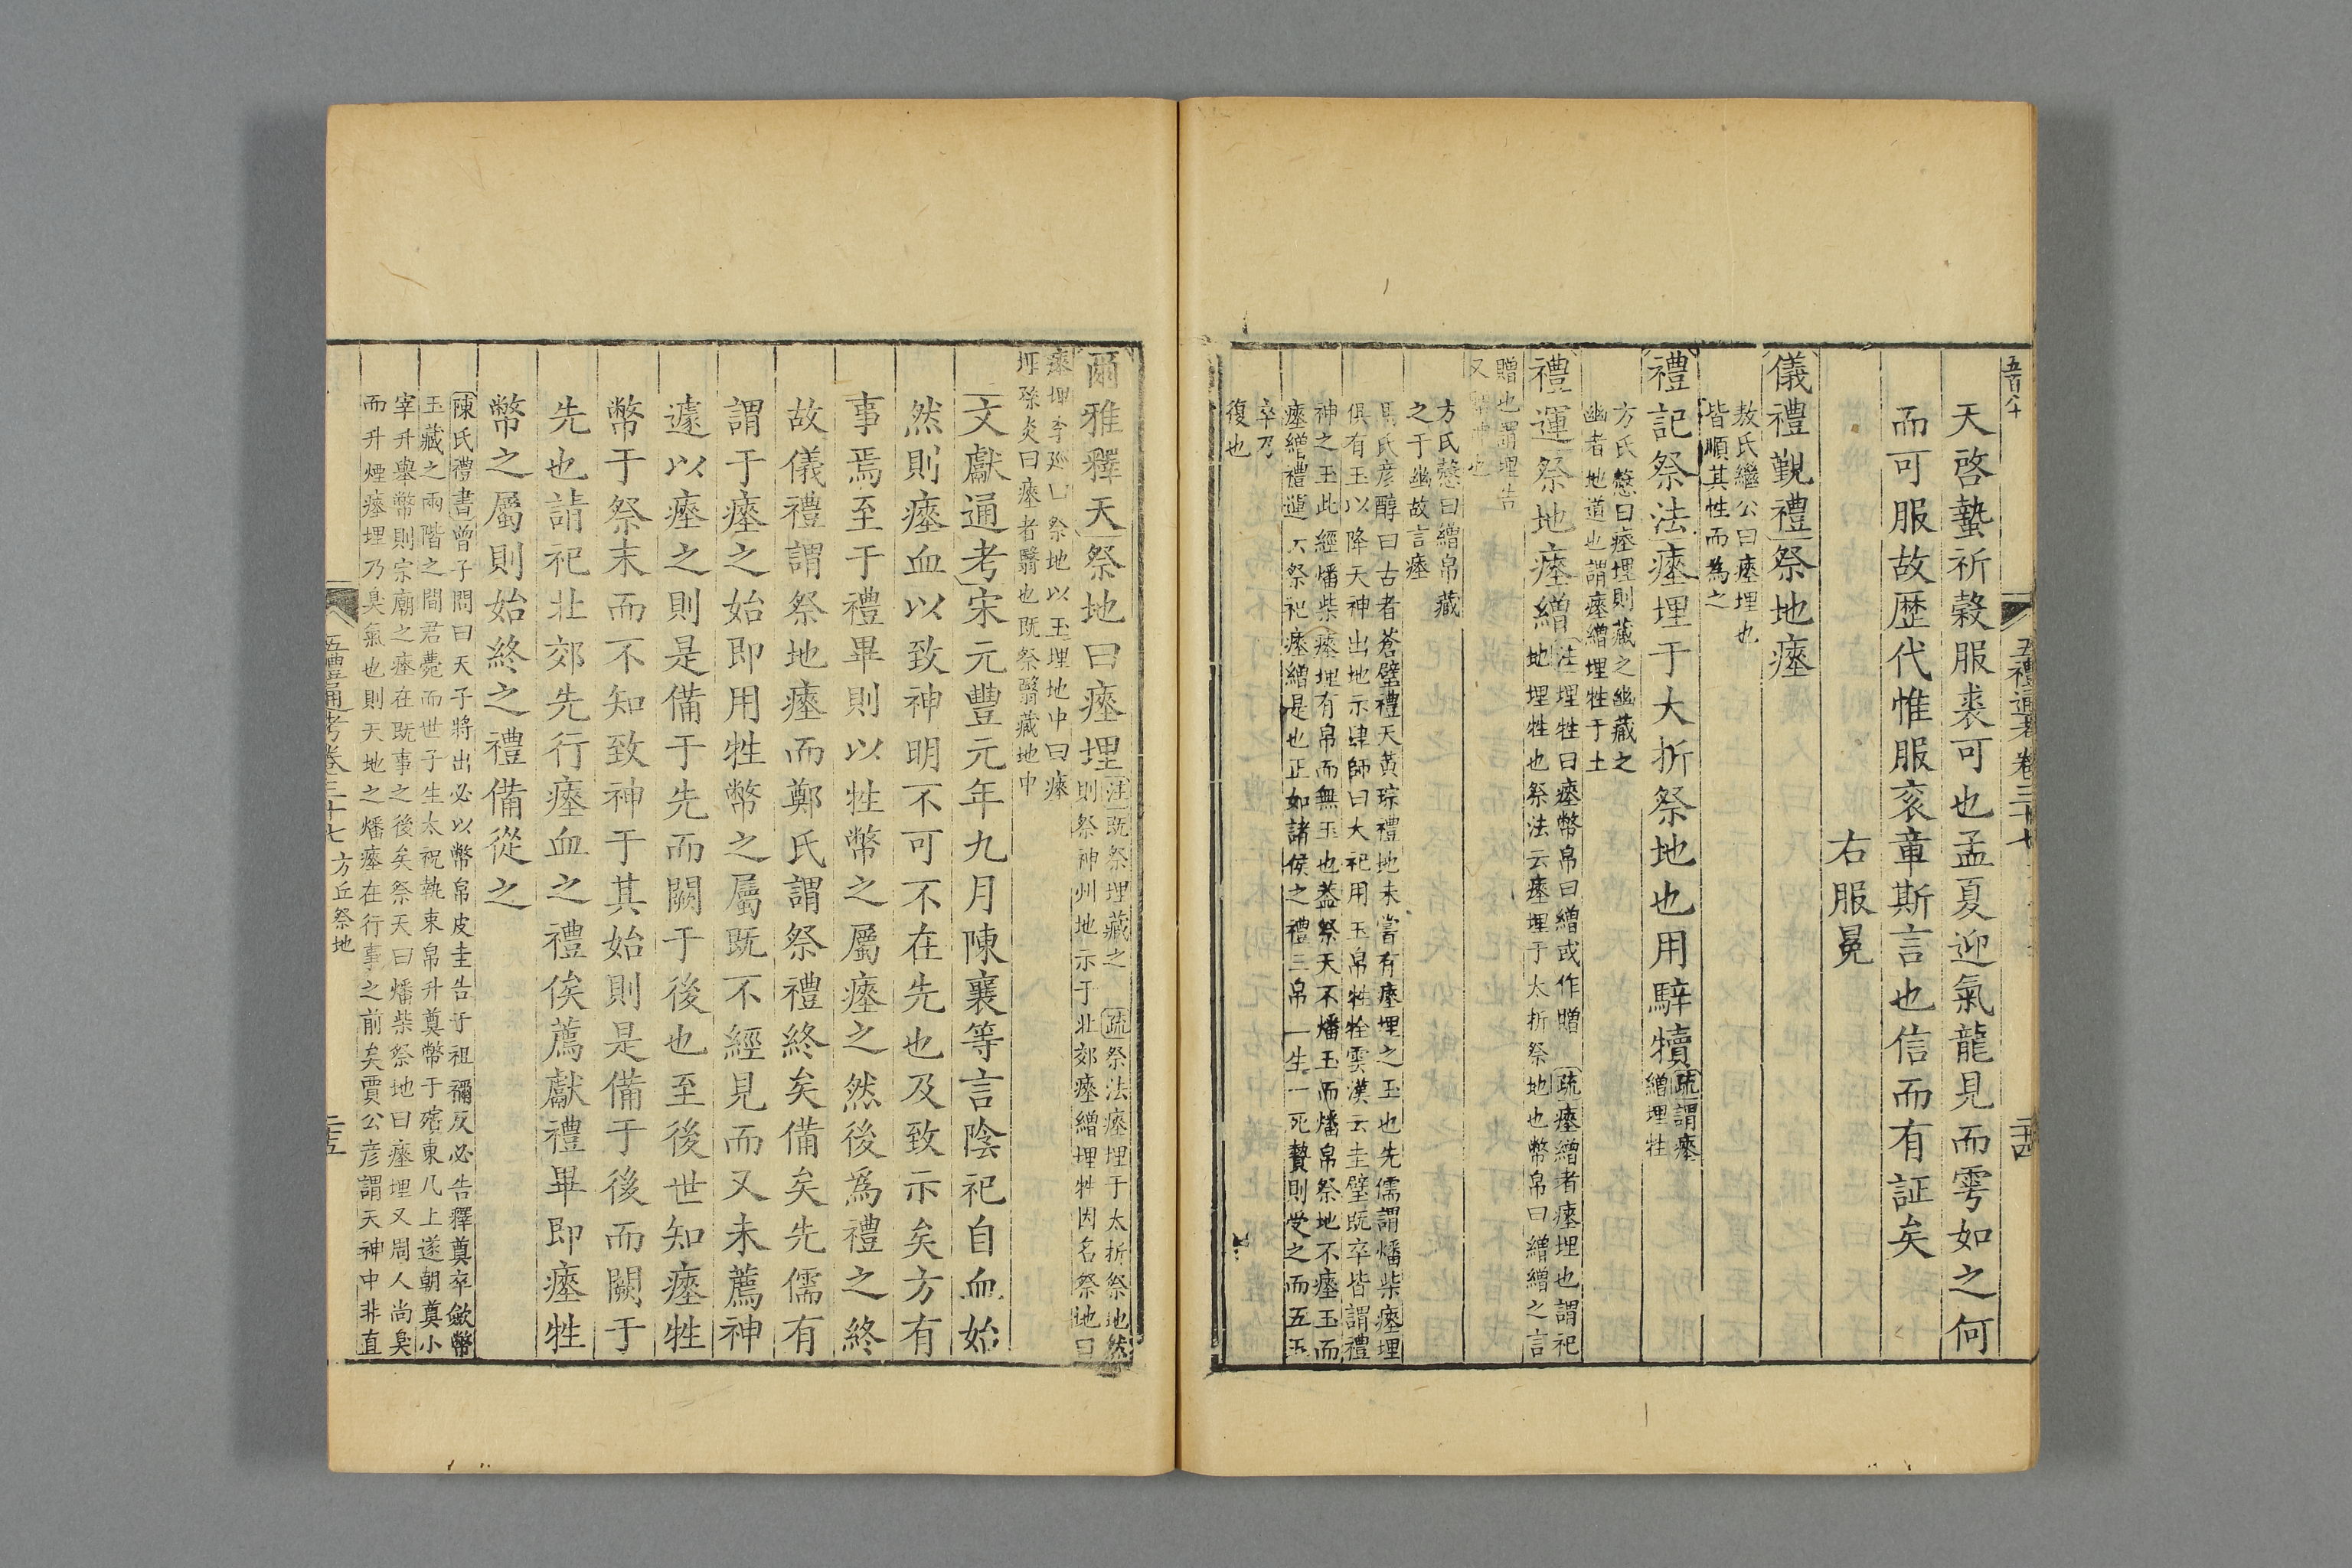 五百八十
五禮通考卷三十七
二十四
天啓蟄祈穀服裘可也孟夏迎氣龍見而雩如之何
而可服故歴代惟服衮章斯言也信而有証矣
右服冕
儀禮覲禮祭地瘞
敖氏繼公曰瘞埋也
皆順其性而為之
禮記祭法瘞埋于大折祭地也用騂犢
疏謂瘞
繒埋牲
方氏慤曰瘞埋則藏之幽藏之
幽者地道也謂瘞繒埋牲于土
禮運祭地瘞繒
注埋牲曰瘞幣帛曰繒或作贈　疏瘞繒者瘞埋也謂祀
地埋牲也祭法云瘞埋于太折祭地也幣帛曰繒繒之言
贈也謂埋告
又贈神也
方氏慤曰繒帛藏
之于幽故言瘞
馬氏彦醇曰古者蒼璧禮天黃琮禮地未嘗有瘞埋之玉也先儒謂燔柴瘞埋
俱有玉以降天神出地示肆師曰大祀用玉帛牲牷雲漢云圭璧既卒皆謂禮
神之玉此經燔柴瘞埋有帛而無玉也葢祭天不燔玉而燔帛祭地不瘞玉而
瘞繒禮運云祭祀瘞繒是也正如諸侯之禮三帛一生一死贄則受之而五玉
卒乃
復也
爾雅釋天祭地曰瘞埋
注既祭埋藏之　疏祭法瘞埋于太折祭地然
則祭神州地示于北郊瘞繒埋牲因名祭地曰
瘞埋李廵曰祭地以玉埋地中曰瘞
埋孫炎曰瘞者翳也既祭翳藏地中
文獻通考宋元豐元年九月陳襄等言陰祀自血始
然則瘞血以致神明不可不在先也及致示矣方有
事焉至于禮畢則以牲幣之屬瘞之然後為禮之終
故儀禮謂祭地瘞而鄭氏謂祭禮終矣備矣先儒有
謂于瘞之始即用牲幣之屬既不經見而又未薦神
遽以瘞之則是備于先而闕于後也至後世知瘞牲
幣于祭末而不知致神于其始則是備于後而闕于
先也請祀北郊先行瘞血之禮俟薦獻禮畢即瘞牲
幣之屬則始終之禮備從之
陳氏禮書曾子問曰天子將出必以幣帛皮圭告于祖禰反必告釋奠卒斂幣
玉藏之兩階之間君薨而世子生太祝執束帛升奠幣于殯東几上遂朝奠小
宰升舉幣則宗廟之瘞在既事之後矣祭天曰燔柴祭地曰瘞埋又周人尚臭
而升煙瘞埋乃臭氣也則天地之燔瘞在行事之前矣賈公彦謂天神中非直
五禮通考卷三十七　方丘祭地
二十五